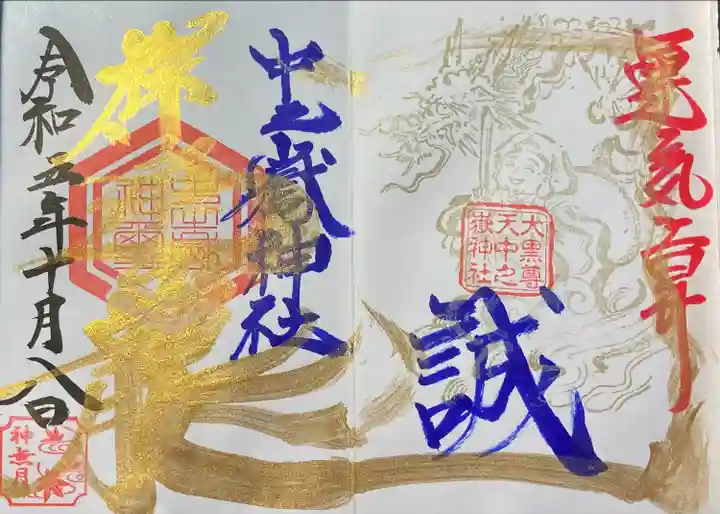 運気昇
大黒尊
天中之
嶽神社
誠
中之嶽神社
令和五年十月八日
神無月